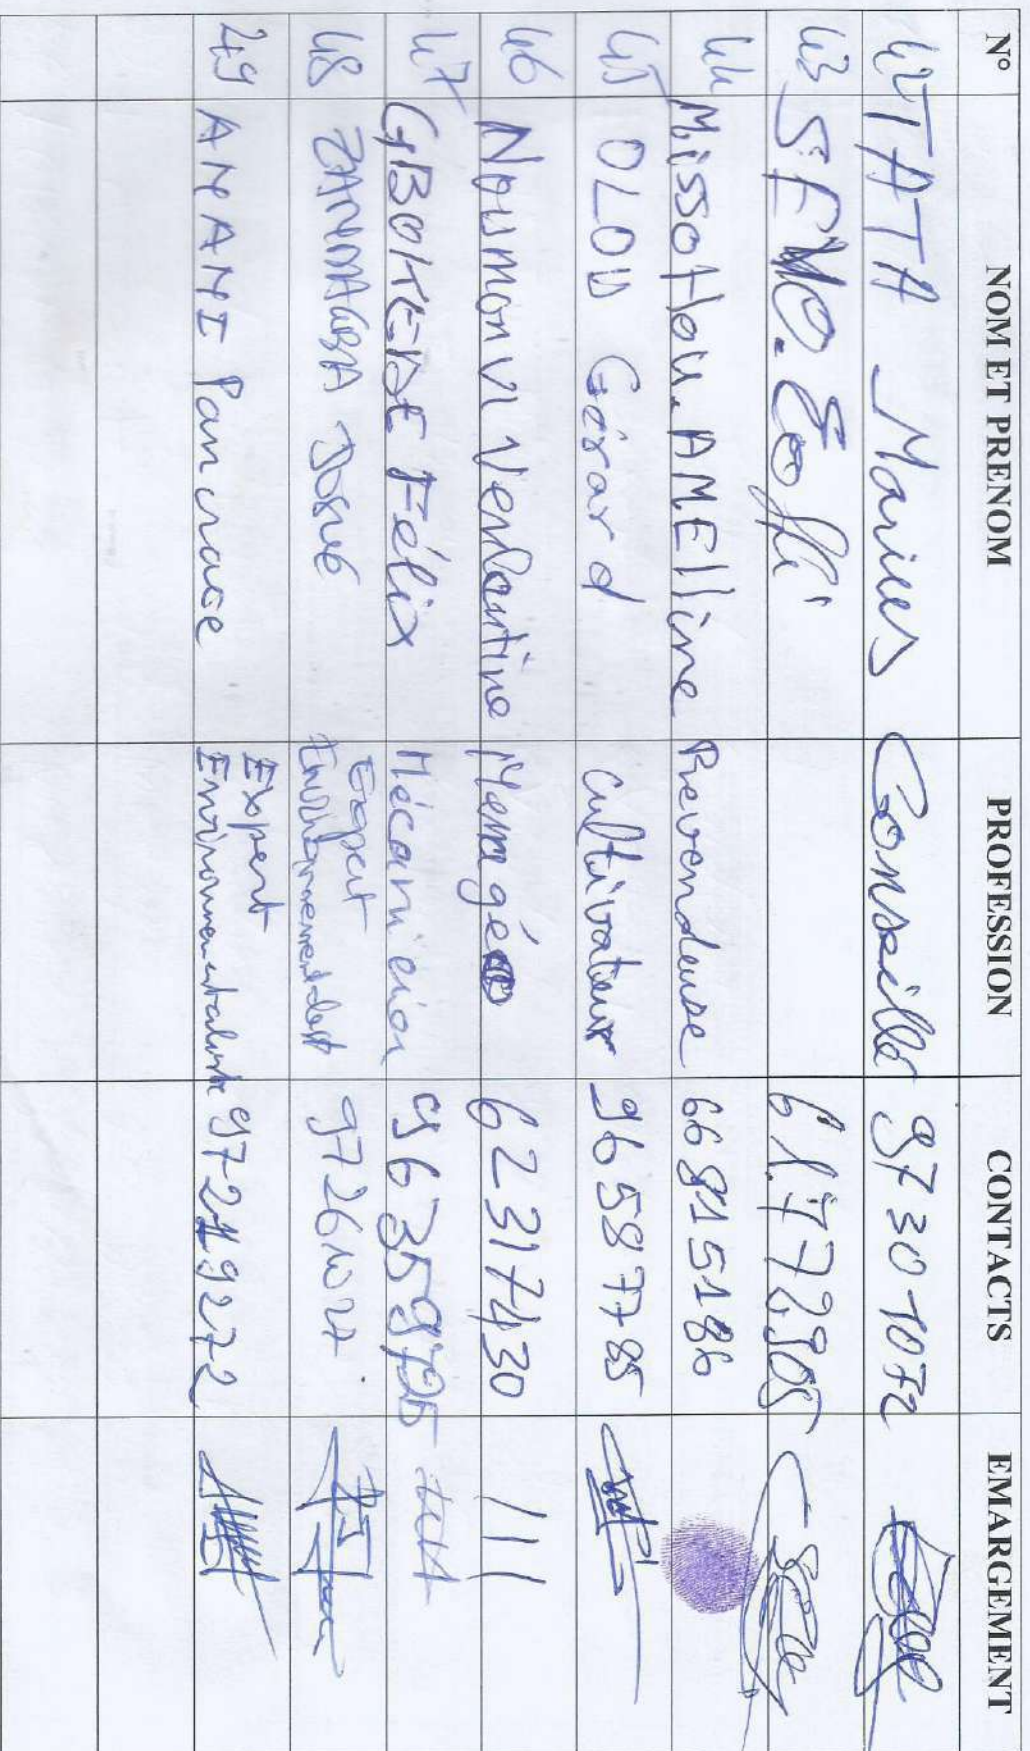 N° NOM ET PRENOM PROFESSION CONTACTS EMARGEMENT
42 TATA Marius Conseiller 97301072
43 SEMO. Eoffi 61.772905
44 Missotlou. AMElline Revendeuse 66815186
45 OLOU Gérard Cultivateur 96587785
46 Noumonvi Venlantine Menagée 62317430
47 GBOKEDE Félix Mécanicien 96359725
48 ZANMAGBA Josué Expert 97261027
49 AMAMI Pancrace Expert Environnementaliste 97219272